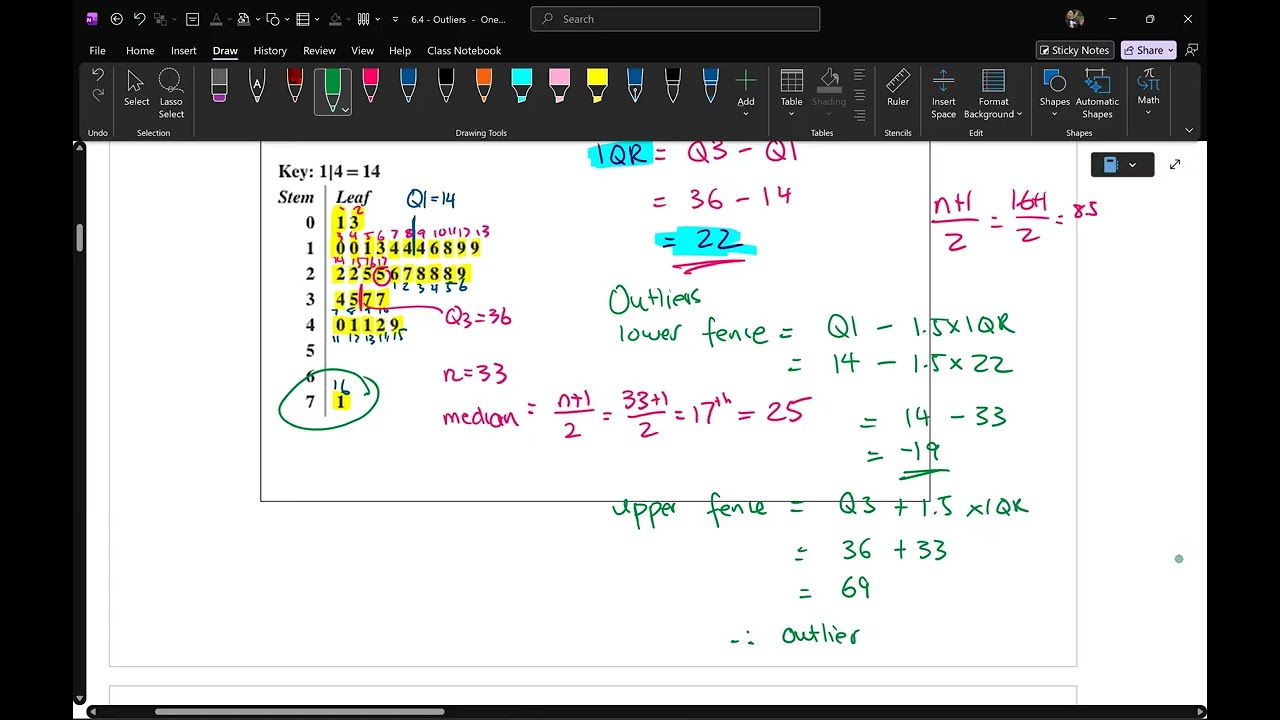 6.4 - Outliers - One...
Search
File Home Insert Draw History Review View Help Class Notebook
Sticky Notes Share
Select Lasso Select Add Table Shading Ruler Insert Space Format Background Shapes Automatic Shapes Math
Undo Selection Drawing Tools Tables Stencils Edit Shapes
IQR = Q3 - Q1
Key: 1|4 = 14
= 36 - 14
= 22
n+1/2 = 16+1/2 = 85
Stem Leaf
Q1=14
0 1 3
1 2
1 0 0 1 3 4 4 4 4 6 8 9 9
3 4 5 6 7 8 9 10 11 12 13
2 2 2 5 5 6 7 8 8 8 9
14 15 16 17
1 2 3 4 5 6
3 4 5 7 7
7 8 9 10
Q3=36
4 0 1 1 2 9
11 12 13 14 15
5
6
7 1
16
n=33
median = n+1/2 = 33+1/2 = 17th = 25
Outliers
lower fence = Q1 - 1.5×IQR
= 14 - 1.5×22
= 14 - 33
= -19
upper fence = Q3 + 1.5 ×IQR
= 36 + 33
= 69
∴ outlier